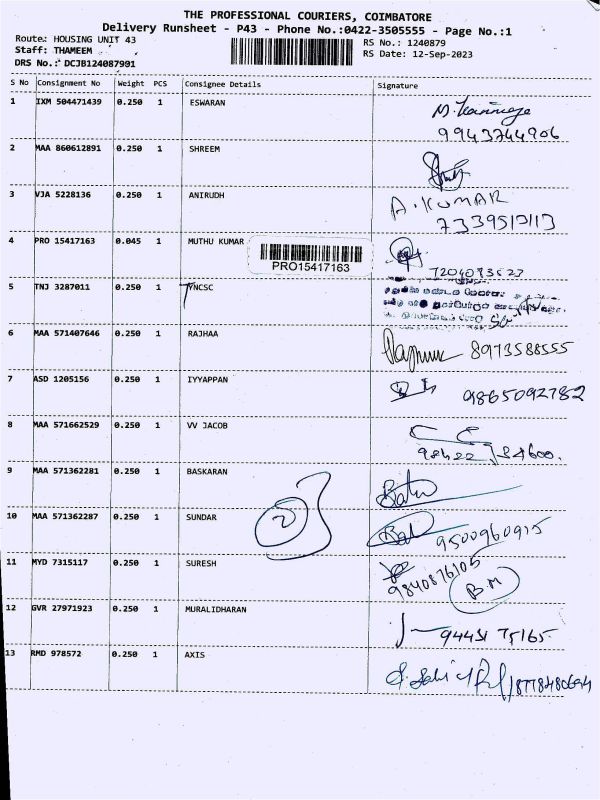 THE PROFESSIONAL COURIERS, COIMBATORE
Delivery Runsheet - P43 - Phone No.:0422-3505555 - Page No.:1
Route: HOUSING UNIT 43
RS No.: 1240879
Staff: THAMEEM
RS Date: 12-Sep-2023
DRS No.: DCJB124087991
S No Consignment No Weight PCS Consignee Details Signature
1 IXM 504471439 0.250 1 ESWARAN
9943744906
2 MAA 860612891 0.250 1 SHREEM
3 VJA 5228136 0.250 1 ANIRUDH A.KUMAR
7339513113
4 PRO 15417163 0.045 1 MUTHU KUMAR
PRO15417163
5 TNJ 3287011 0.250 1 TNCSC
6 MAA 571407646 0.250 1 RAJHAA 8973588555
7 ASD 1205156 0.250 1 IYYAPPAN 9865092782
8 MAA 571662529 0.250 1 VV JACOB
9 MAA 571362281 0.250 1 BASKARAN
10 MAA 571362287 0.250 1 SUNDAR 2 9500960915
11 MYD 7315117 0.250 1 SURESH 9840876105
B.M
12 GVR 27971923 0.250 1 MURALIDHARAN 94431 75165
13 RMD 978572 0.250 1 AXIS